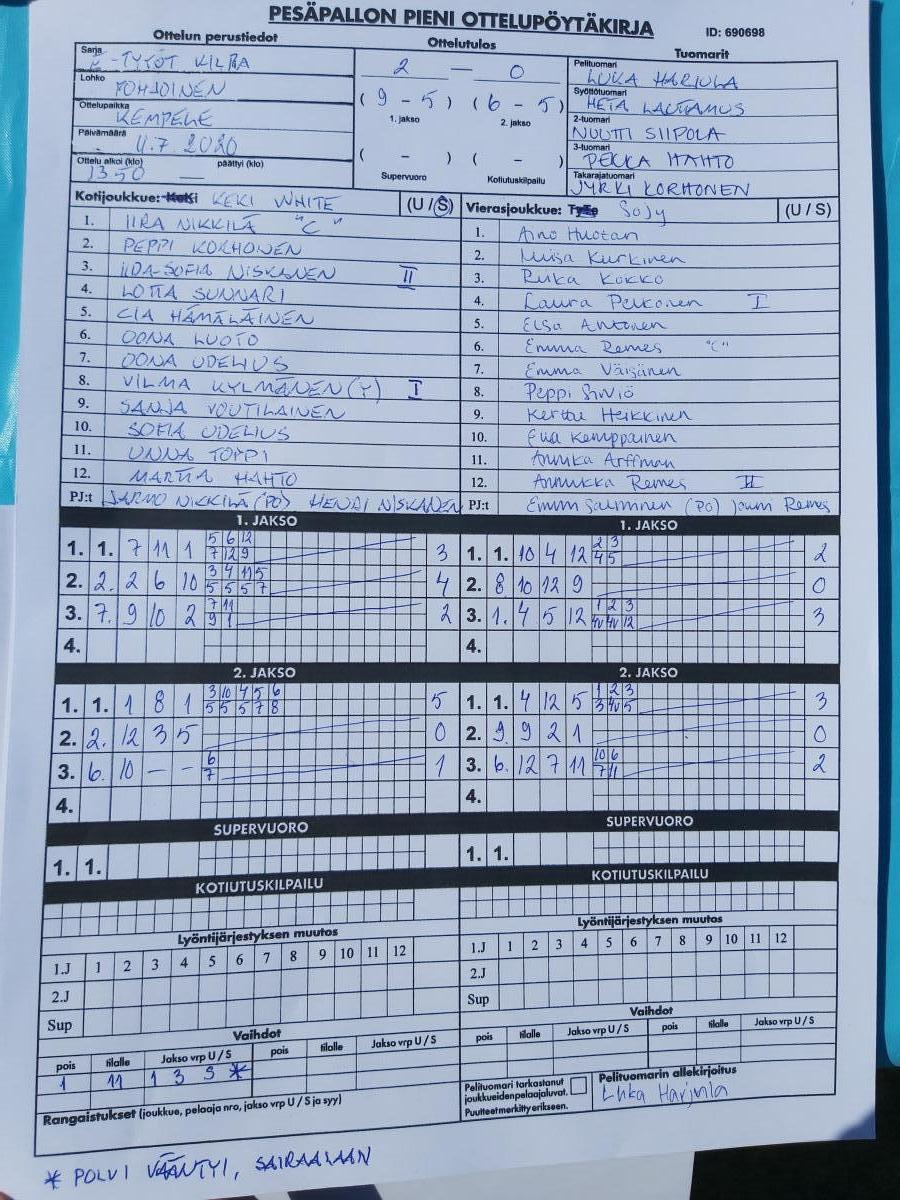 PESÄPALLON PIENI OTTELUPÖYTÄKIRJA
ID: 690698
Ottelun perustiedot
Ottelutulos
Tuomarit
Sarja
E-TYTÖT KILPA
Lohko
POHJOINEN
Ottelupaikka
KEMPELE
Päivämäärä
4.7 2020
Ottelu alkoi (klo) päättyi (klo)
1350 —
2 — 0
( 9 - 5 ) ( 6 - 5 )
1. jakso 2. jakso
( - ) ( - )
Supervuoro Kotiutuskilpailu
Pelituomari
LUKA HARJULA
Syöttötuomari
HETA LAUTAMUS
2-tuomari
NUUTTI SIIPOLA
3-tuomari
PEKKA HAHTO
Takarajatuomari
JYRKI KORHONEN
Kotijoukkue: KEKI WHITE (U / S)
1. IIRA NIKKILÄ "C"
2. PEPPI KORHONEN
3. IIDA-SOFIA NISKANEN II
4. LOTTA SUNNARI
5. CIA HÄMÄLÄINEN
6. OONA LUOTO
7. OONA UDELIUS
8. VILMA KYLMÄNEN (Y) I
9. SANJA VOUTILAINEN
10. SOFIA UDELIUS
11. UNNA TOPPI
12. MARTTA HAHTO
PJ:t JARMO NIKKILÄ (PO) HENRI NISKANEN
Vierasjoukkue: SoJy (U / S)
1. Aino Huotari
2. Miisa Kurkinen
3. Ruka Kokko
4. Laura Pekonen I
5. Elsa Anttonen
6. Emma Remes "C"
7. Emma Väisänen
8. Peppi
9. Kerttu Heikkinen
10. Eva Kemppainen
11. Annika Arffman
12. Annukka Remes II
PJ:t (PO) Jouni Remes
1. JAKSO
1. 1. 7 11 1 5 6 12 3
7 12 9
2. 2. 2 6 10 3 4 11 5 4
5 5 5 7
3. 7. 9 10 2 7 11 2
9 1
4.
1. JAKSO
1. 1. 10 4 12 2 3 2
4 5
2. 8 10 12 9 0
3. 1. 4 5 12 1 2 3 3
4V 4V 12
4.
2. JAKSO
1. 1. 1 8 1 3 10 4 5 6 5
5 5 5 7 8
2. 2. 12 3 5 0
3. 6. 10 — — 6 1
7
4.
2. JAKSO
1. 1. 4 12 5 1 2 3 3
3 4V 5
2. 9. 9 2 1 0
3. 6. 12 7 11 10 6 2
7 11
4.
SUPERVUORO
1. 1.
SUPERVUORO
1. 1.
KOTIUTUSKILPAILU
KOTIUTUSKILPAILU
Lyöntijärjestyksen muutos
1.J 1 2 3 4 5 6 7 8 9 10 11 12
2.J
Sup
Lyöntijärjestyksen muutos
1.J 1 2 3 4 5 6 7 8 9 10 11 12
2.J
Sup
Vaihdot
pois tilalle Jakso vrp U / S pois tilalle Jakso vrp U / S
1 11 1 3 S *
Vaihdot
pois tilalle Jakso vrp U / S pois tilalle Jakso vrp U / S
Rangaistukset (joukkue, pelaaja nro, jakso vrp U / S ja syy)
Pelituomari tarkastanut
joukkueiden pelaajaluvat.
Puutteet merkitty erikseen.
Pelituomarin allekirjoitus
Luka Harjula
* POLVI VÄÄNTYI, SAIRAALAAN